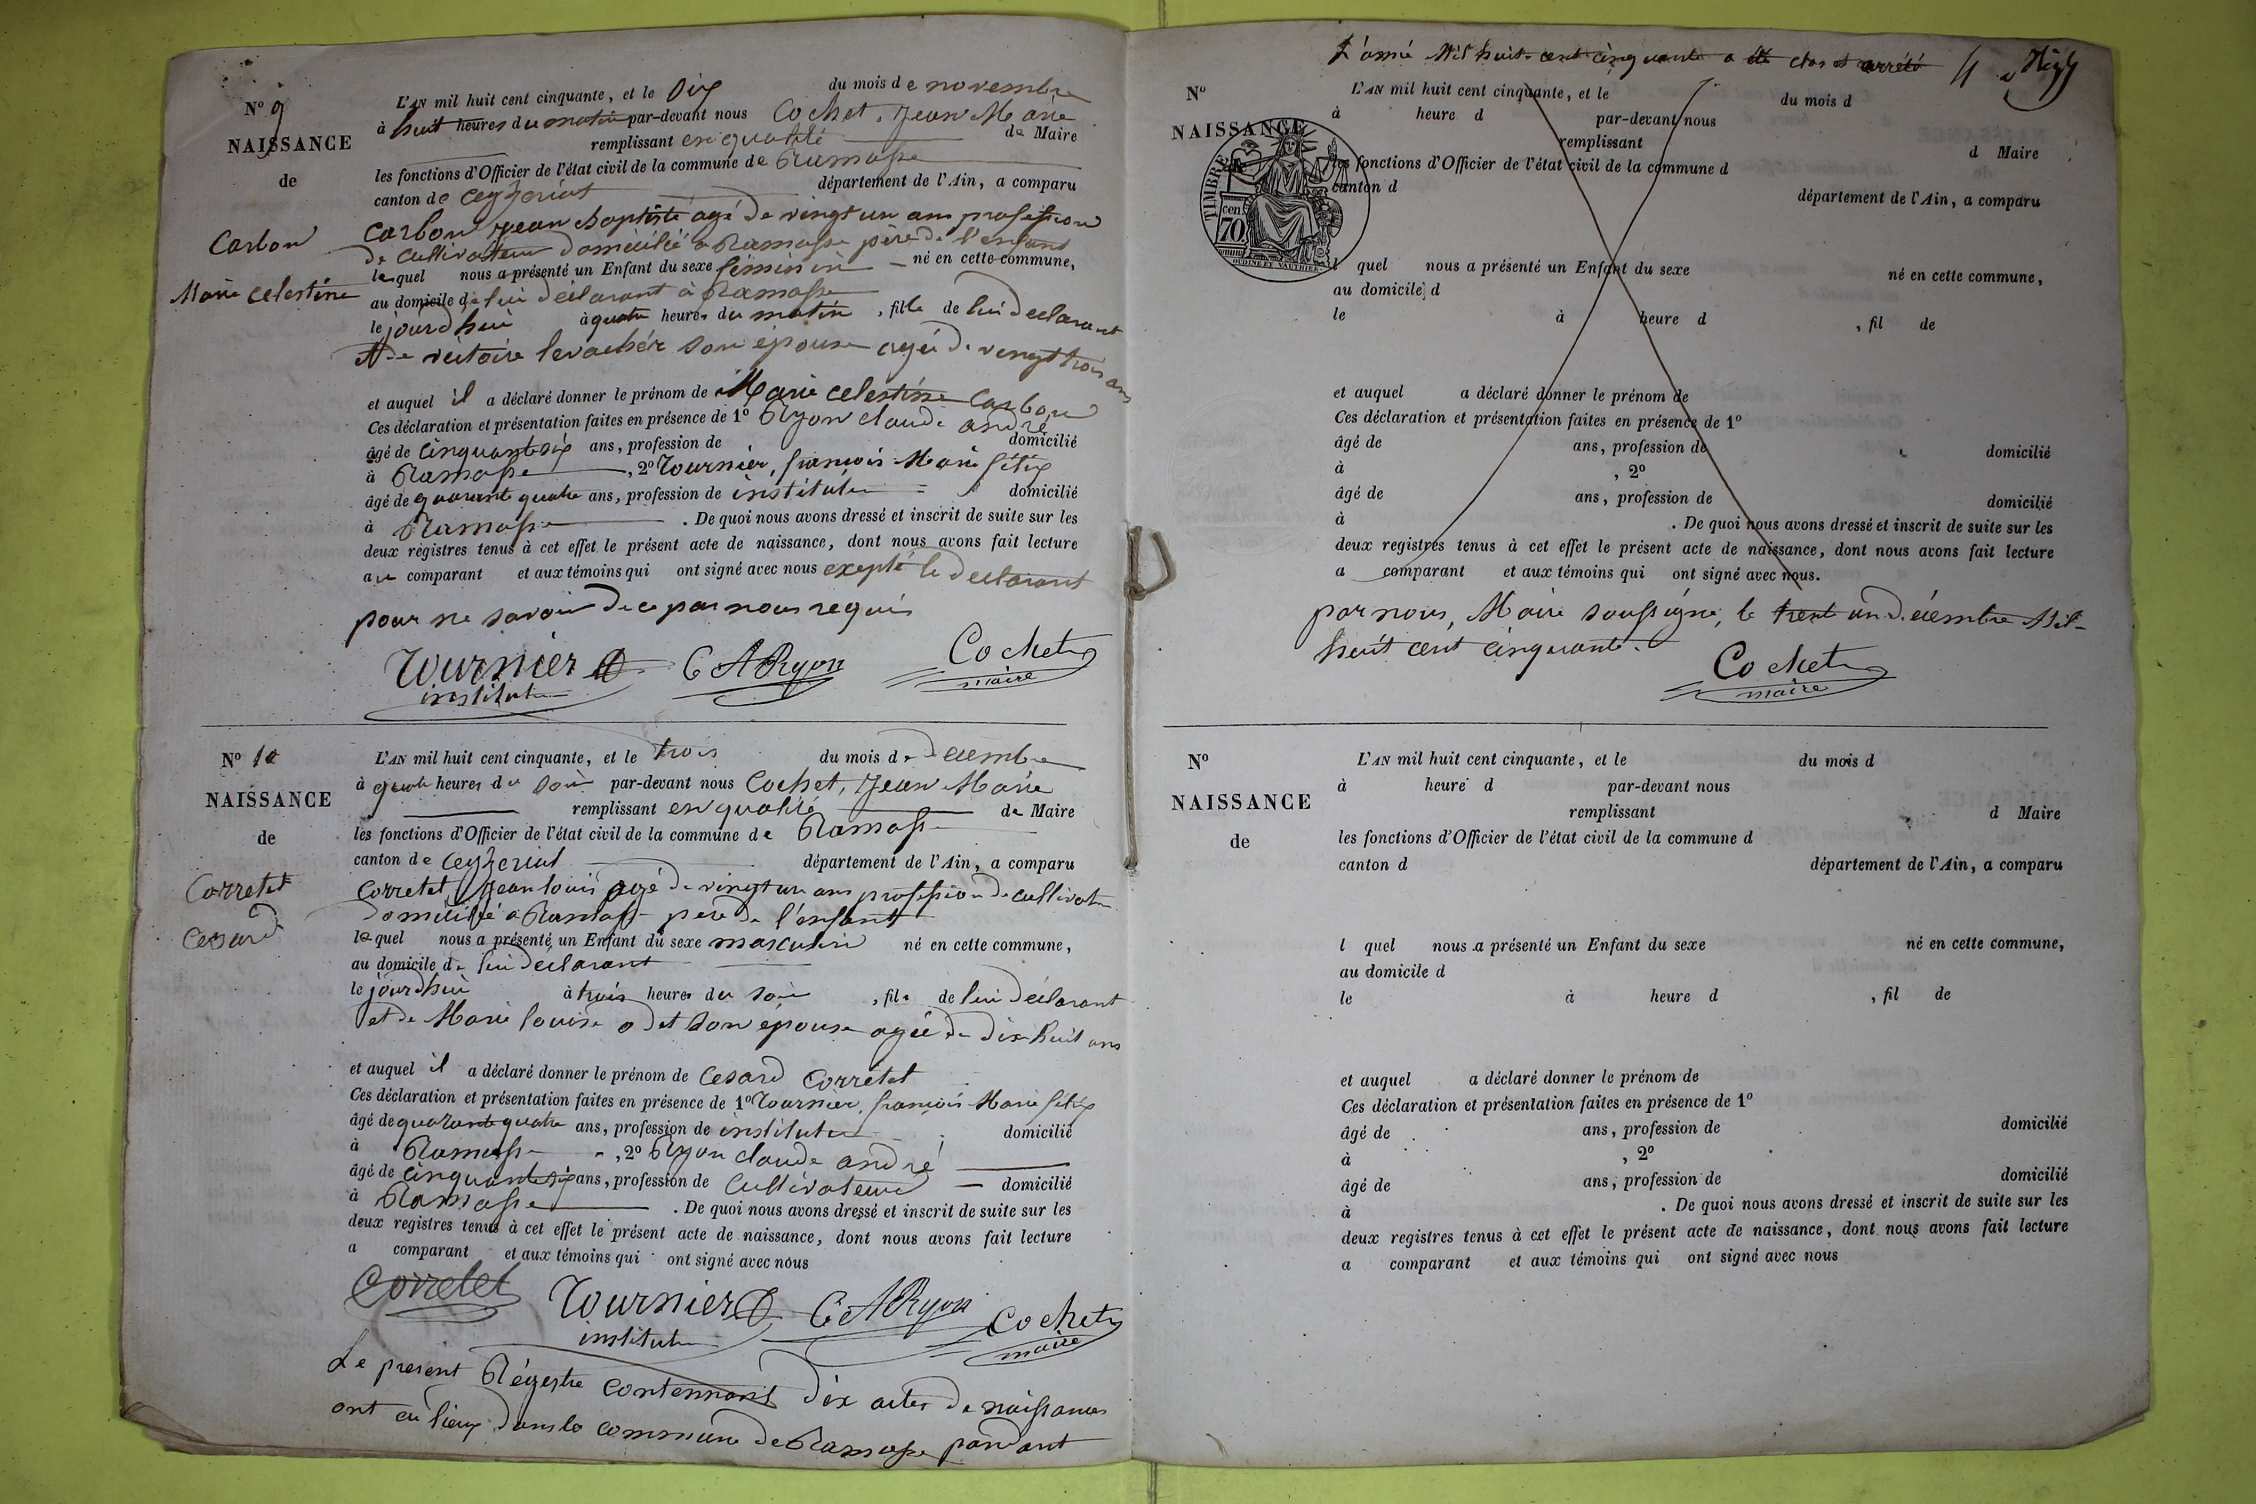 N° 9
NAISSANCE
de
Carbon
Marie Celestine
L'AN mil huit cent cinquante, et le Dix du mois de novembre
à huit heures du matin par-devant nous Cochet, Jean Marie
remplissant en qualité de Maire
les fonctions d'Officier de l'état civil de la commune de Ramasse
canton de Ceyzeriat département de l'Ain, a comparu
Carbon Jean baptiste agé de vingt un ans profession
de cultivateur domicilié à Ramasse père de l'enfant
lequel nous a présenté un Enfant du sexe féminin né en cette commune,
au domicile de lui déclarant à Ramasse
le jourd'hui à quatre heures du matin, fille de lui declarant
et de victoire levacher son épouse agée de vingt trois ans
et auquel il a déclaré donner le prénom de Marie celestine Carbon
Ces déclaration et présentation faites en présence de 1° Ryon claude andré
âgé de cinquante six ans, profession de domicilié
à Ramasse, 2° Tournier, françois Marie félix
âgé de quarante quatre ans, profession de instituteur domicilié
à Ramasse. De quoi nous avons dressé et inscrit de suite sur les
deux registres tenus à cet effet le présent acte de naissance, dont nous avons fait lecture
au comparant et aux témoins qui ont signé avec nous excepté le declarant
pour ne savoir de ce par nous requis
Tournier C A Ryon Cochet
instituteur maire
N° 10
NAISSANCE
de
Corretet
Cesard
L'AN mil huit cent cinquante, et le trois du mois de Decembre
à quatre heures du soir par-devant nous Cochet, Jean Marie
remplissant en qualité de Maire
les fonctions d'Officier de l'état civil de la commune de Ramasse
canton de Ceyzeriat département de l'Ain, a comparu
Corretet Jean louis agé de vingt un ans profession de cultivateur
domicilié à Ramasse père de l'enfant
lequel nous a présenté un Enfant du sexe masculin né en cette commune,
au domicile de lui déclarant
le jourd'hui à trois heures du soir, fils de lui déclarant
et de Marie louise odet son épouse agée de dix huit ans
et auquel il a déclaré donner le prénom de Cesard Corretet
Ces déclaration et présentation faites en présence de 1° Tournier, françois Marie félix
âgé de quarante quatre ans, profession de instituteur domicilié
à Ramasse, 2° Ryon claude andré
âgé de cinquante six ans, profession de Cultivateur domicilié
à Ramasse. De quoi nous avons dressé et inscrit de suite sur les
deux registres tenus à cet effet le présent acte de naissance, dont nous avons fait lecture
a comparant et aux témoins qui ont signé avec nous
Corretet Tournier C A Ryon Cochet
instituteur maire
Le present Régestre contennant dix actes de naissances
ont eu lieux dans la commune de Ramasse pandant
L'année Mil huit cent cinquante a été clos et arrété
N°
NAISSANCE
TIMBRE
cen.
70
OUDINE ET VAUTHIER
L'AN mil huit cent cinquante, et le du mois d
à heure d par-devant nous
remplissant d Maire
les fonctions d'Officier de l'état civil de la commune d
canton d département de l'Ain, a comparu
l quel nous a présenté un Enfant du sexe né en cette commune,
au domicile d
le à heure d , fil de
et auquel a déclaré donner le prénom de
Ces déclaration et présentation faites en présence de 1°
âgé de ans, profession de domicilié
à , 2°
âgé de ans, profession de domicilié
à . De quoi nous avons dressé et inscrit de suite sur les
deux registres tenus à cet effet le présent acte de naissance, dont nous avons fait lecture
a comparant et aux témoins qui ont signé avec nous.
par nous, Maire soussigné, le trent un Décembre Mil
huit cent cinquante.
Cochet
maire
N°
NAISSANCE
de
L'AN mil huit cent cinquante, et le du mois d
à heure d par-devant nous
remplissant d Maire
les fonctions d'Officier de l'état civil de la commune d
canton d département de l'Ain, a comparu
l quel nous a présenté un Enfant du sexe né en cette commune,
au domicile d
le à heure d , fil de
et auquel a déclaré donner le prénom de
Ces déclaration et présentation faites en présence de 1°
âgé de ans, profession de domicilié
à , 2°
âgé de ans, profession de domicilié
à . De quoi nous avons dressé et inscrit de suite sur les
deux registres tenus à cet effet le présent acte de naissance, dont nous avons fait lecture
a comparant et aux témoins qui ont signé avec nous